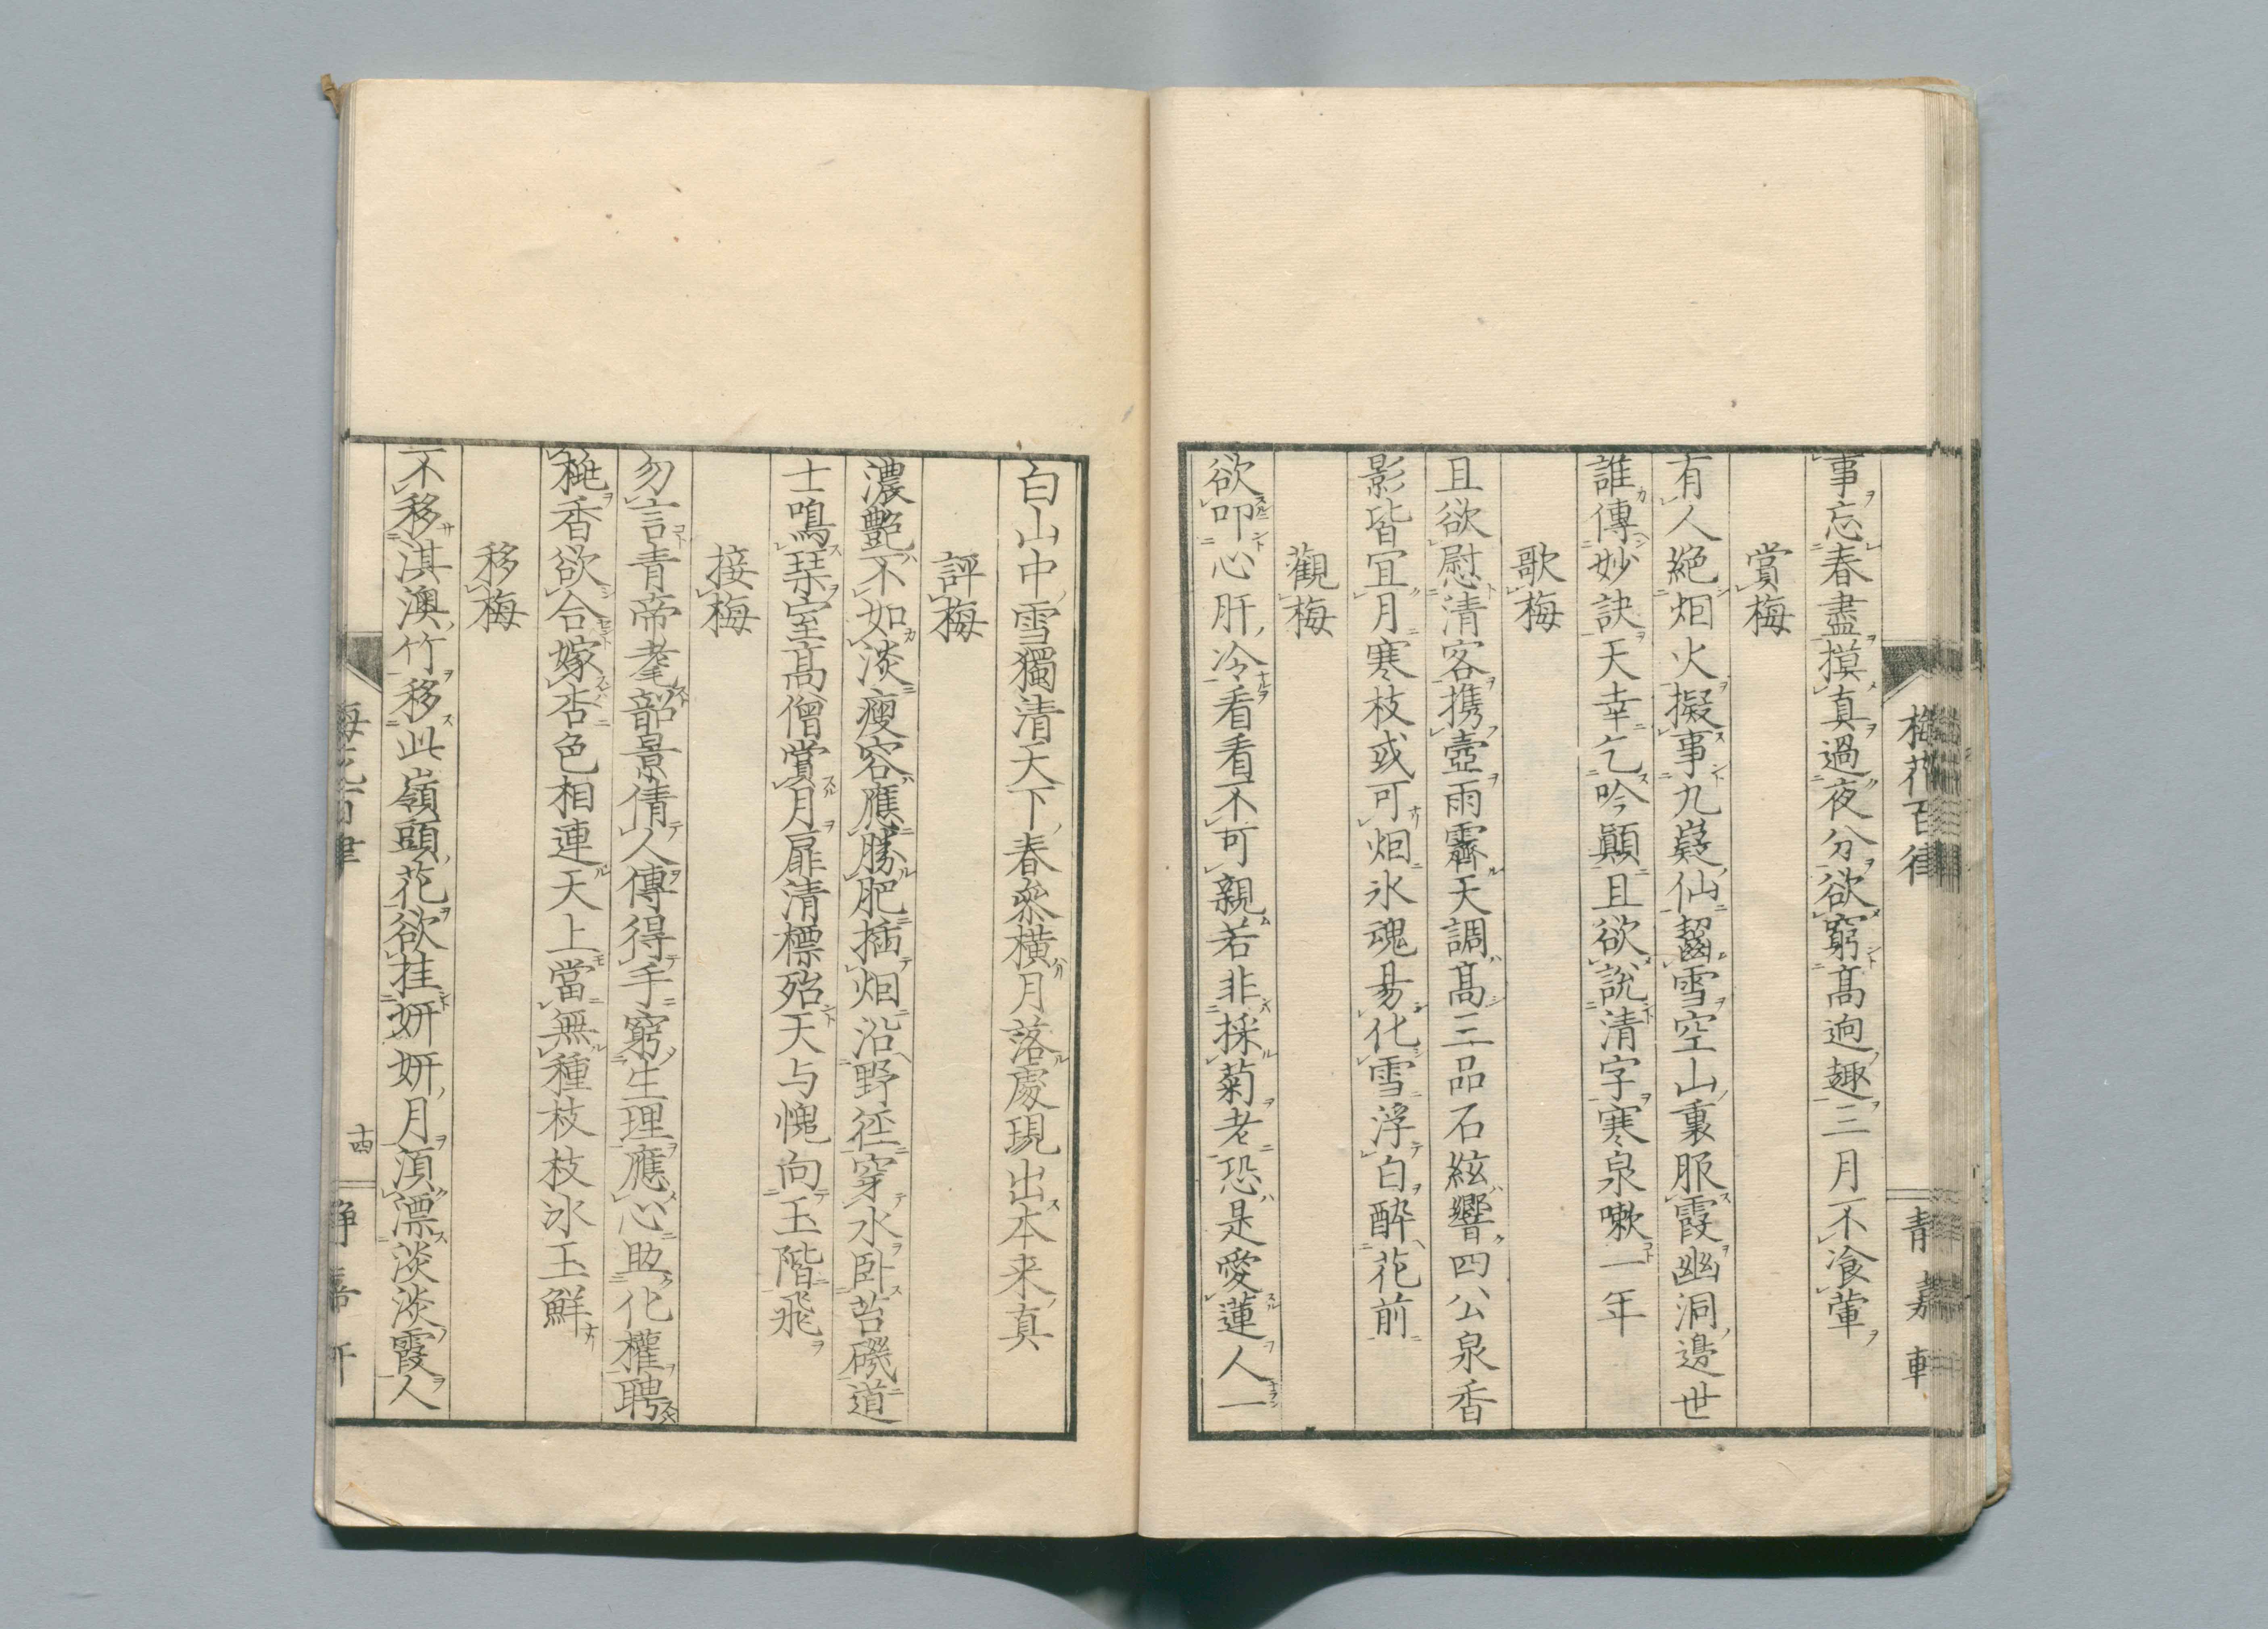 事忘春盡摸真過夜分欲窮高逈趣三月不飡葷
賞梅
有人絶烟火擬事九嶷仙齧雪空山裏服霞幽洞邊世
誰傳妙訣天幸乞吟顚且欲説清字寒泉嗽一年
歌梅
且欲慰清客携壺雨霽天調髙三品石絃響四公泉香
影皆宜月寒枝或可烟氷魂易化雪浮白醉花前
觀梅
欲叩心肝冷看看不可親若非採菊老恐是愛蓮人一
梅花百律
静嘉軒
白山中雪獨清天下春叅横月落處現出本来真
評梅
濃艷不如淡瘦容應勝肥插烟沿野徑穿水卧苔磯道
士鳴琹室髙僧賞月扉清標殆天与愧向玉階飛
接梅
勿言青帝耄韶景倩人傳得手窮生理應心助化權聘
桃香欲合嫁杏色相連天上當無種枝枝氷玉鮮
移梅
不移淇澳竹移此嶺頭花欲挂妍妍月湏漂淡淡霞人
十四